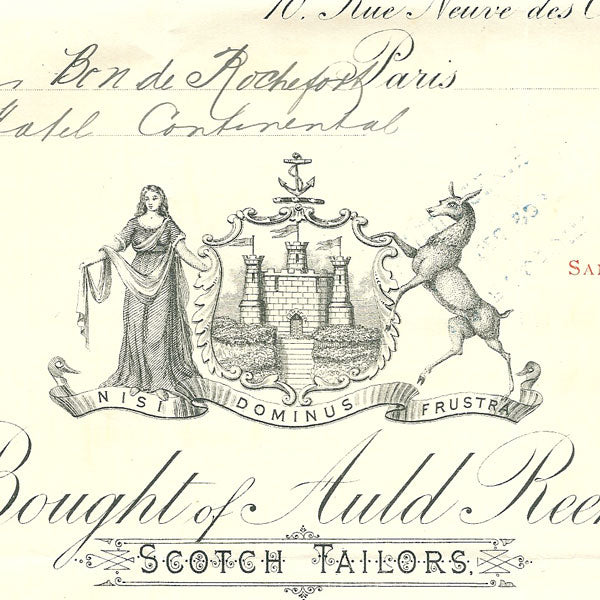 10. Rue Neuve des C
Bon de Rochefort Paris
Hotel Continental
NISI DOMINUS FRUSTRA
Bought of Auld Reek
SCOTCH TAILORS.